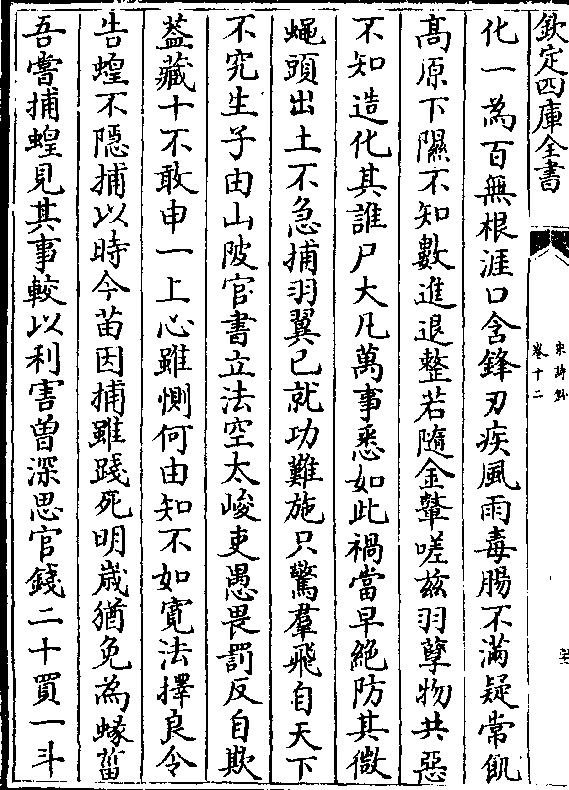 欽定四庫全書
宋詩鈔
卷十二
化一為百無根涯口含鋒刃疾風雨毒腸不滿疑常飢
髙原下隰不知數進退整若隨金鼙嗟兹羽孽物共惡
不知造化其誰尸大凡萬事悉如此禍當早絶防其微
蠅頭出土不急捕羽翼已就功難施只驚羣飛自天下
不究生子由山陂官書立法空太峻吏愚畏罰反自欺
葢藏十不敢申一上心雖惻何由知不如寛法擇良令
告蝗不隠捕以時今苗因捕雖踐死明嵗猶免為蝝菑
吾嘗捕蝗見其事較以利害曽深思官錢二十買一斗